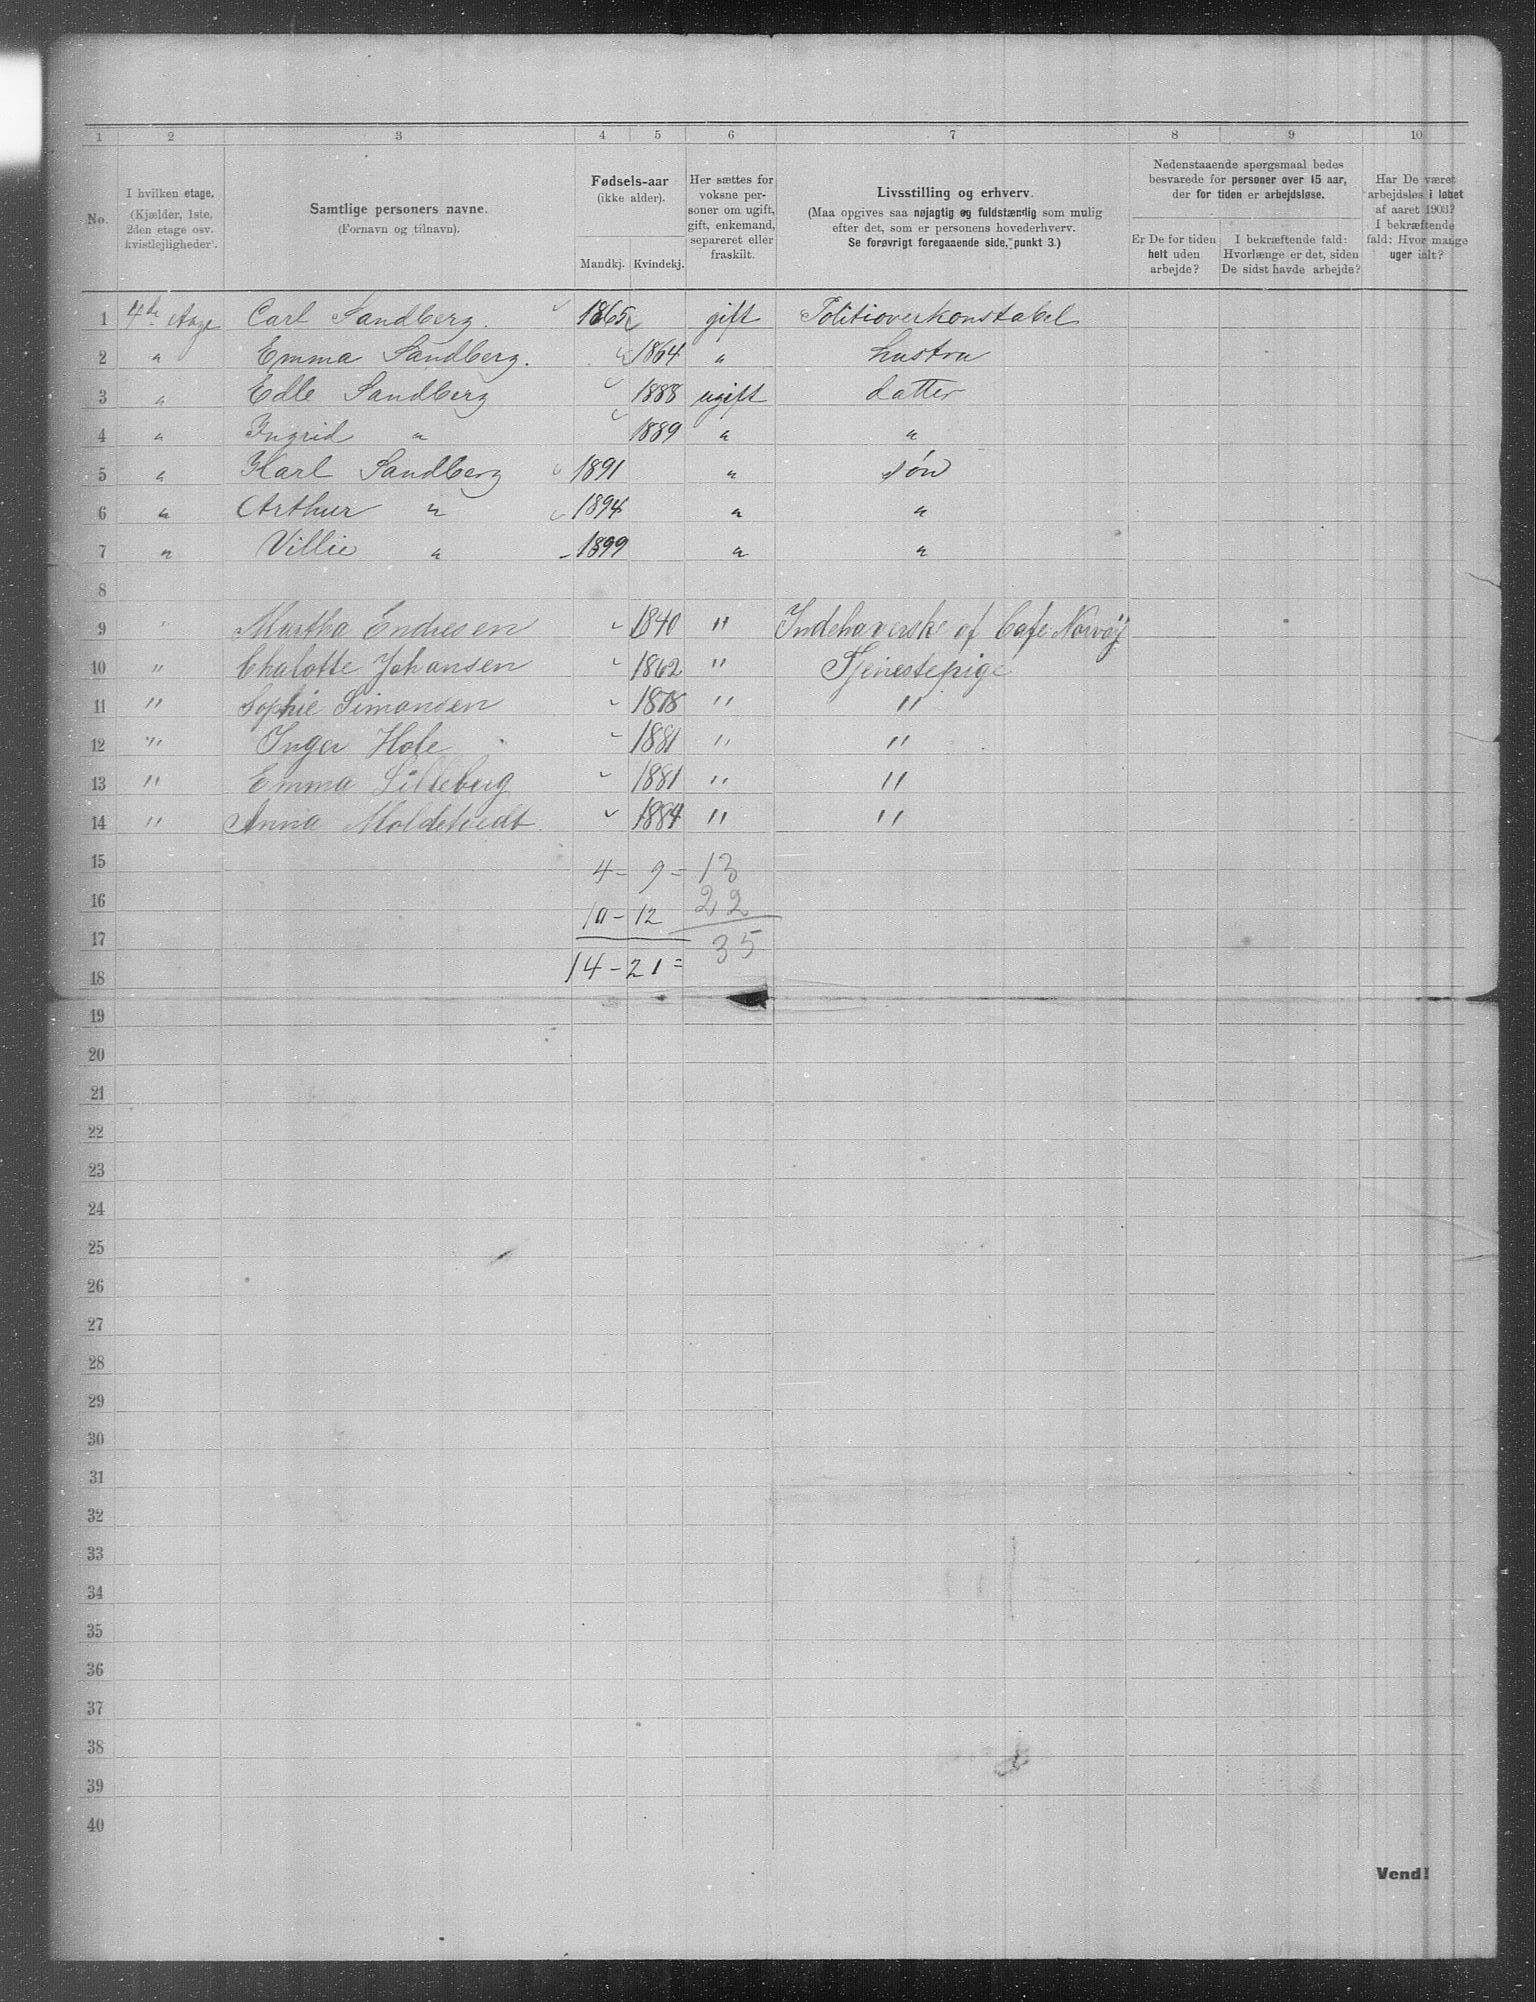 1 2 3 4 5 6 7 8 9 10
No.
I hvilken etage. (Kjælder, 1ste, 2den etage osv. kvistlejligheder.
Samtlige personers navne. (Fornavn og tilnavn).
Fødsels-aar (ikke alder). Mandkj. Kvindekj.
Her sættes for voksne personer om ugift, gift, enkemand, separeret eller fraskilt.
Livsstilling og erhverv. (Maa opgives saa nøjagtig og fuldstændig som mulig efter det, som er personens hovederhverv. Se forøvrigt foregaaende side, punkt 3.)
Nedenstaaende spørgsmaal bedes besvarede for personer over 15 aar, der for tiden er arbejdsløse.
Er De for tiden helt uden arbejde?
I bekræftende fald: Hvorlænge er det, siden De sidst havde arbejde?
Har De været arbejdsløs i løbet af aaret 1903? I bekræftende fald: Hvor mange uger ialt?
1 4de Etage Carl Sandberg. 1865 gift Politioverkonstabel
2 " Emma Sandberg. 1864 " hustru
3 " Edle Sandberg 1888 ugift datter
4 " Ingrid " 1889 " "
5 " Karl Sandberg 1891 " søn
6 " Arthur " 1894 " "
7 " Villie " 1899 " "
8
9 " Martha Endresen 1840 " Indehaverske af Cafe Norvøy
10 " Chalotte Johansen 1862 " Tjenestepige
11 " Sophie Simonsen 1878 " "
12 " Inger Hole 1881 " "
13 " Emma Lilleberg 1881 " "
14 " Anna 1884 " "
15 4 - 9 = 13
16 10 - 12 22
17 35
18 14 - 21 =
19
20
21
22
23
24
25
26
27
28
29
30
31
32
33
34
35
36
37
38
39
40
Vend!